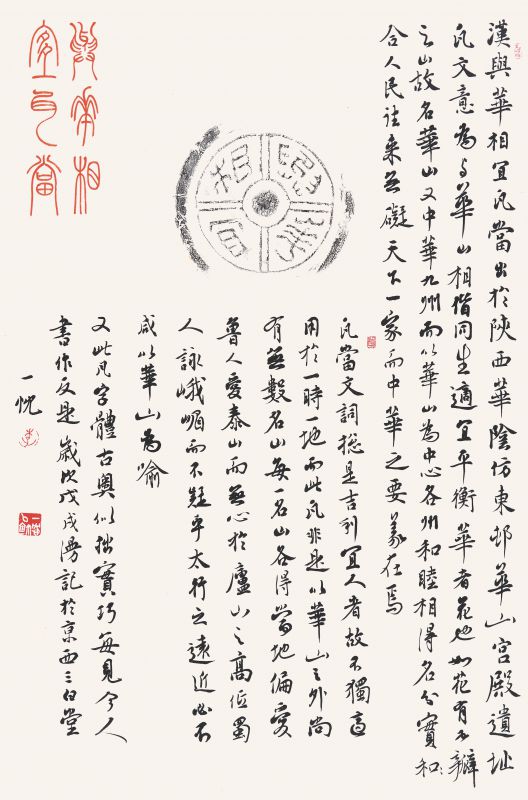 與華相
宜瓦當
與華相宜
漢與華相宜瓦當出於陝西華陰坊東邨華山宮殿遺址
瓦文意為与華山相偕同生適宜平衡華者花也如花有小瓣
之山故名華山又中華九州而以華山為中心各州和睦相得名分實和
合人民往来無礙天下一家而中華之要義在焉
瓦當文詞摠是吉利宜人者故不獨適
用於一時一地而此瓦非是以華山之外尚
有無數名山每一名山各得當地偏愛
魯人愛泰山而無心於廬山之高位蜀
人詠峨嵋而不疑乎太行之遠近必不
咸以華山為喻
又此瓦字體古奧似拙實巧每見今人
書作反是歲次戊戌漫記於京西三白堂
一忱